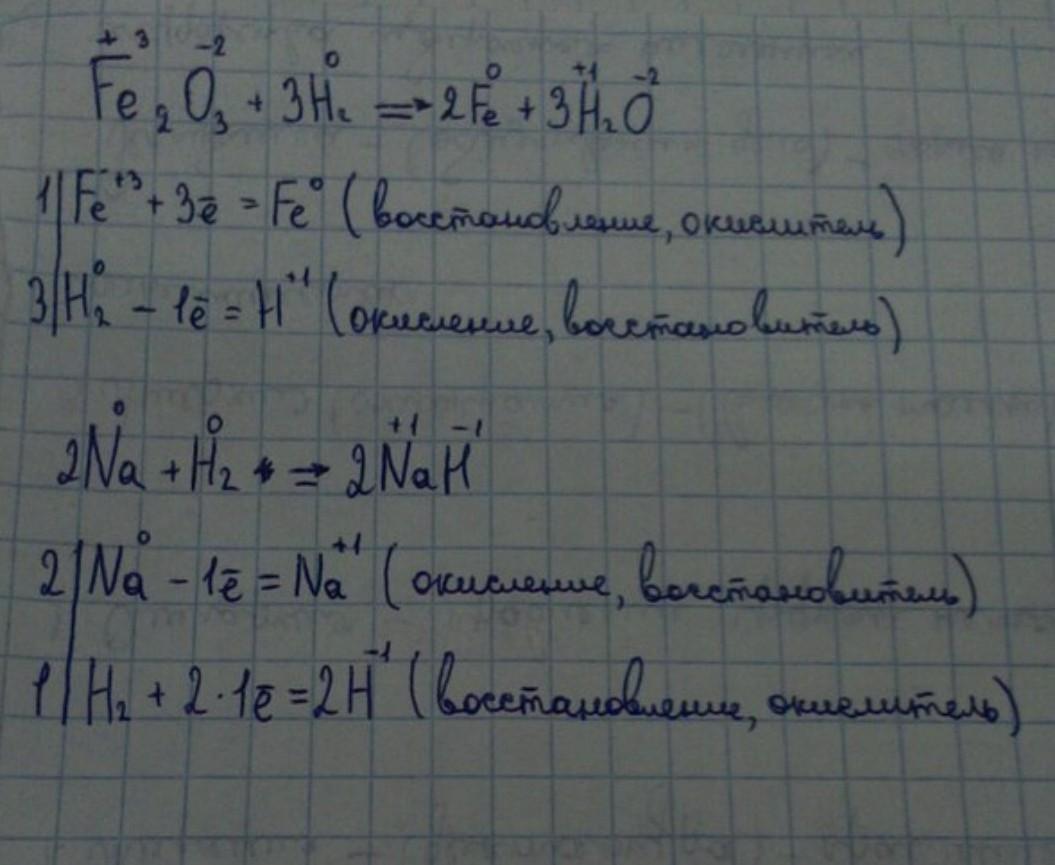 Fe₂⁺³O₃⁻² + 3H₂⁰ => 2Fe⁰ + 3H₂⁺¹O⁻²
1| Fe⁺³ + 3ē = Fe⁰ (восстановление, окислитель)
3| H₂⁰ - 1ē = H⁺¹ (окисление, восстановитель)
2Na⁰ + H₂⁰ => 2Na⁺¹H⁻¹
2| Na⁰ - 1ē = Na⁺¹ (окисление, восстановитель)
1| H₂ + 2·1ē = 2H⁻¹ (восстановление, окислитель)